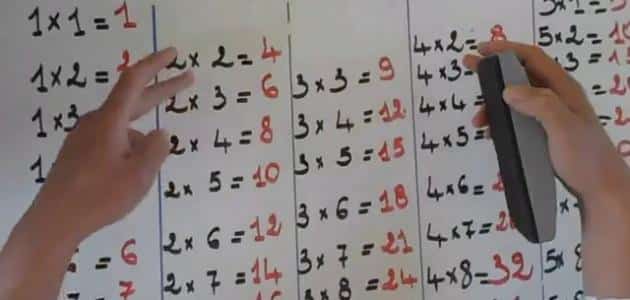 1 × 1 = 1
1 × 2 =
1 × 3
= 6
= 7
2 × 2 = 4
2 × 3 = 6
2 × 4 = 8
2 × 5 = 10
2 × 6 = 12
2 × 7 = 14
3 × 3 = 9
3 × 4 = 12
3 × 5 = 15
3 × 6 = 18
3 × 7 = 21
3 × 8 = 24
4 × 2 = 8
4 × 3
4 × 4 =
4 × 5 =
4 × 6 =
4 × 7 =
4 × 8 = 32
5 × 1 =
5 × 2 =
× 3
5 × 8